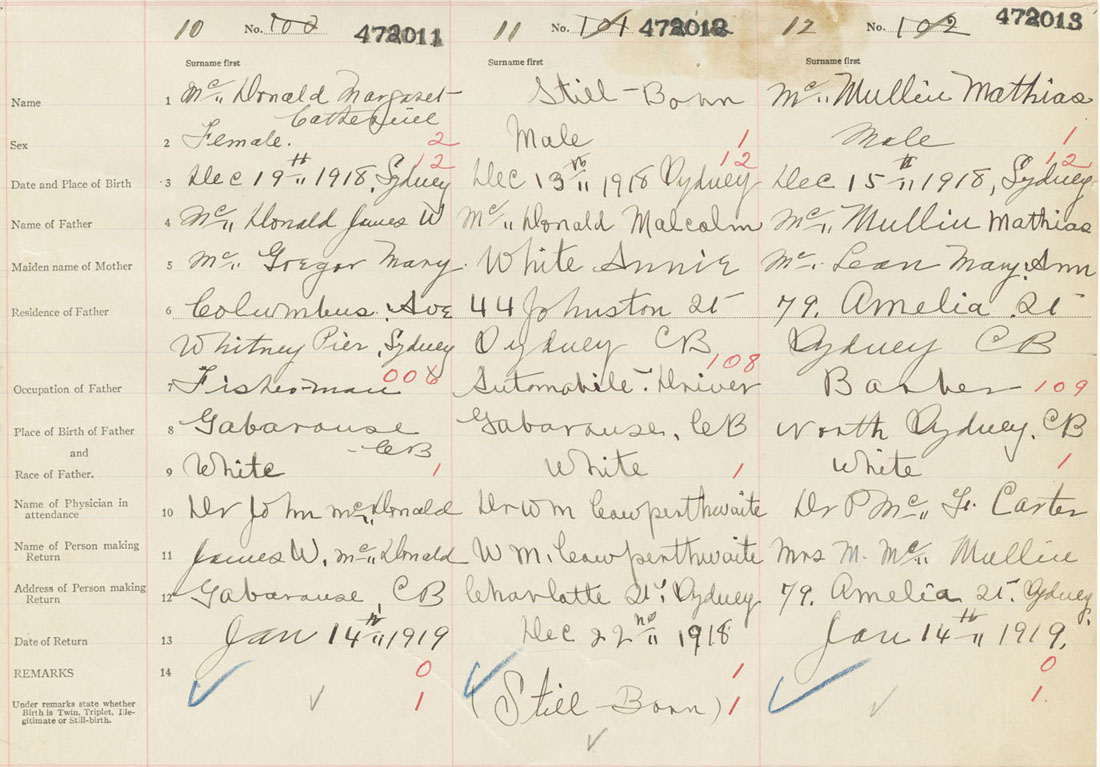 10 No. 100 472011 11 No. 101 472012 12 No. 102 472013
Surname first Surname first Surname first
Name 1 McDonald Margaret Catherine Still-Born McMullin Mathias
Sex 2 Female. 2 Male 1 Male 1
12 12 12
Date and Place of Birth 3 Dec 19th 1918, Sydney Dec 13th 1918 Sydney Dec 15th 1918, Sydney
Name of Father 4 McDonald James W McDonald Malcolm McMullin Mathias
Maiden name of Mother 5 McGregor Mary White Annie McLean Mary Ann
Residence of Father 6 Columbus Ave 44 Johnston St 79. Amelia St
Whitney Pier, Sydney Sydney CB Sydney CB
Occupation of Father 7 Fisherman 006 Automobile Driver 108 Barber 109
Place of Birth of Father 8 Gabarouse CB Gabarouse, CB North Sydney, CB
and
Race of Father. 9 White 1 White 1 White 1
Name of Physician in attendance 10 Dr John McDonald Dr Wm Cowperthwaite Dr P Mc F. Carter
Name of Person making Return 11 James W. McDonald W M. Cowperthwaite Mrs M. McMullin
Address of Person making Return 12 Gabarouse, CB Charlotte St. Sydney 79. Amelia St. Sydney
Date of Return 13 Jan 14th 1919 Dec 22nd 1918 Jan 14th 1919.
REMARKS 14 0 1 0
Under remarks state whether Birth is Twin, Triplet, Ille-
gitimate or Still-birth. 1 (Still-Born) 1 1